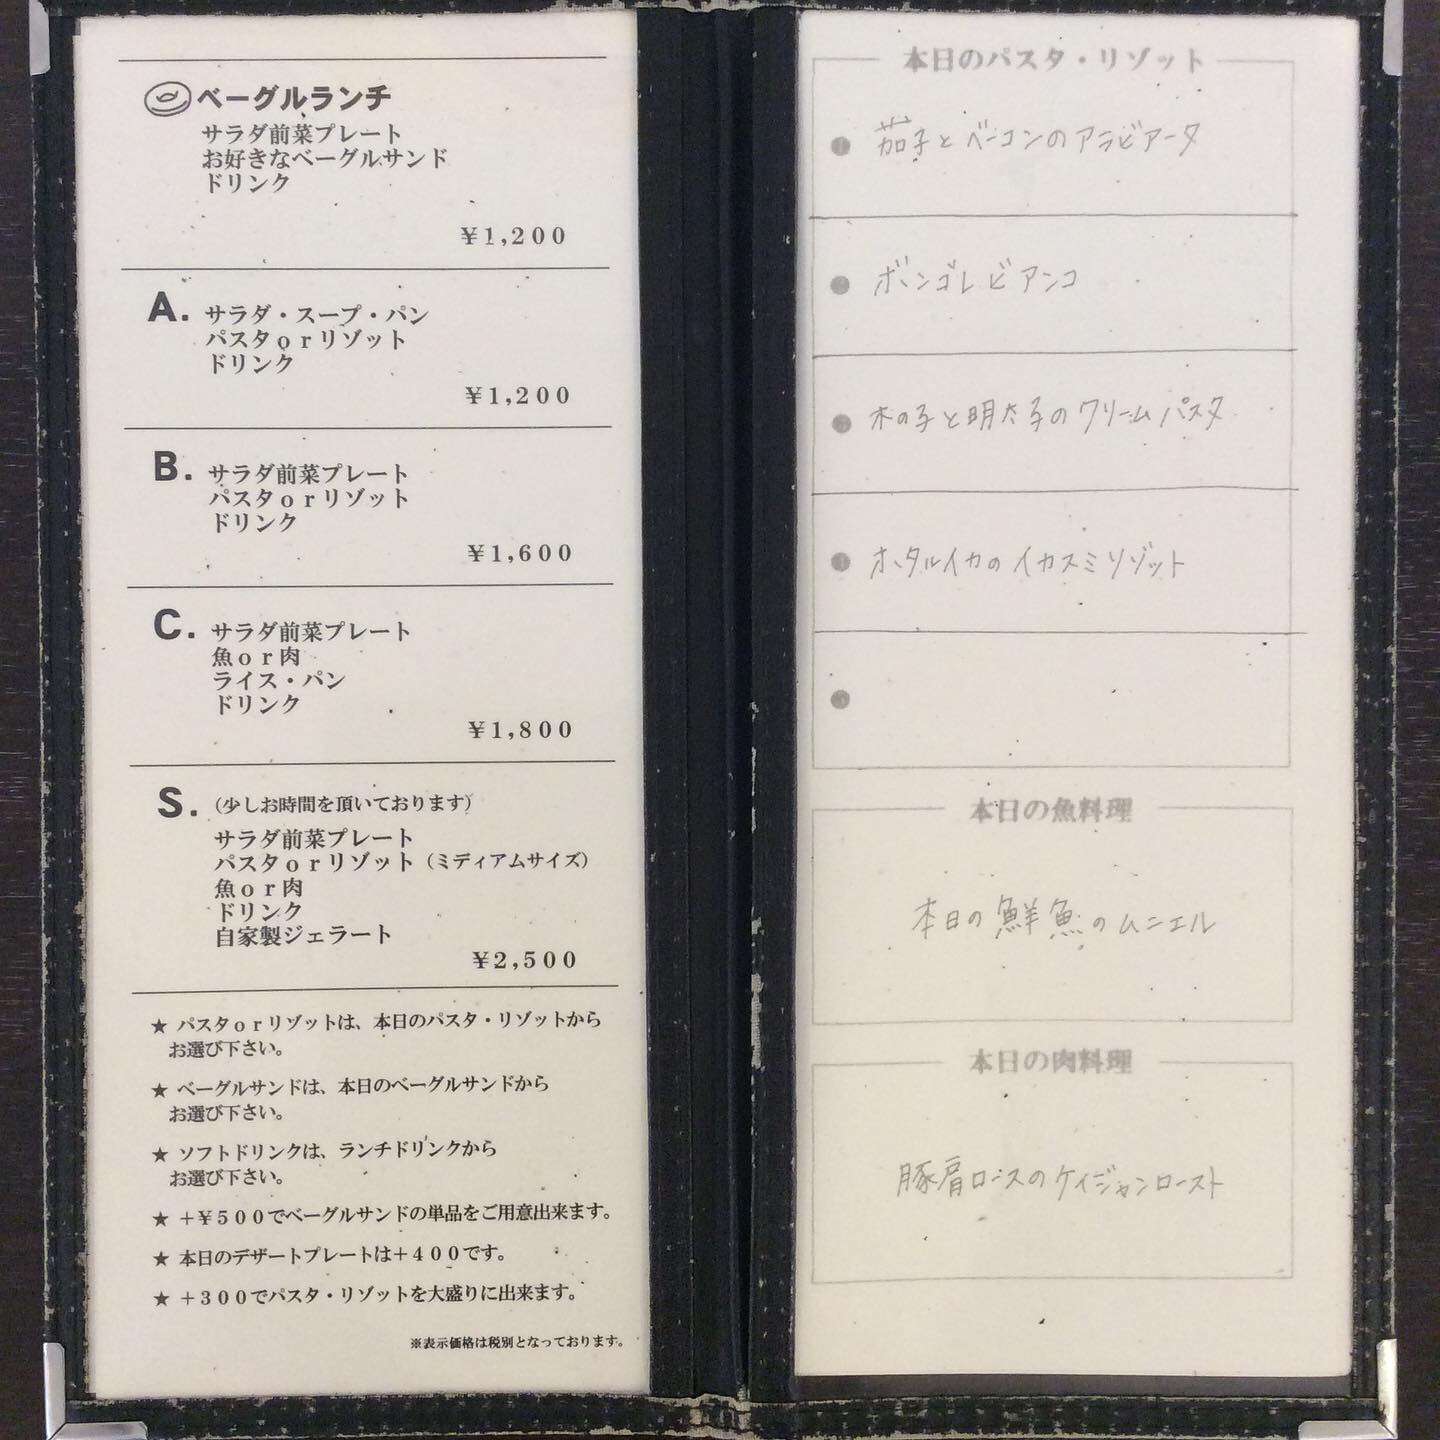 ベーグルランチ
サラダ前菜プレート
お好きなベーグルサンド
ドリンク
¥1,200
A. サラダ・スープ・パン
パスタorリゾット
ドリンク
¥1,200
B. サラダ前菜プレート
パスタorリゾット
ドリンク
¥1,600
C. サラダ前菜プレート
魚or肉
ライス・パン
ドリンク
¥1,800
S. (少しお時間を頂いております)
サラダ前菜プレート
パスタorリゾット(ミディアムサイズ)
魚or肉
ドリンク
自家製ジェラート
¥2,500
★ パスタorリゾットは、本日のパスタ・リゾットから
お選び下さい。
★ ベーグルサンドは、本日のベーグルサンドから
お選び下さい。
★ ソフトドリンクは、ランチドリンクから
お選び下さい。
★ +¥500でベーグルサンドの単品をご用意出来ます。
★ 本日のデザートプレートは+400です。
★ +300でパスタ・リゾットを大盛りに出来ます。
※表示価格は税別となっております。
本日のパスタ・リゾット
● 茄子とベーコンのアラビアータ
● ボンゴレビアンコ
● 木の子と明太子のクリームパスタ
● ホタルイカのイカスミリゾット
●
本日の魚料理
本日の鮮魚のムニエル
本日の肉料理
豚肩ロースのケイジャンロースト